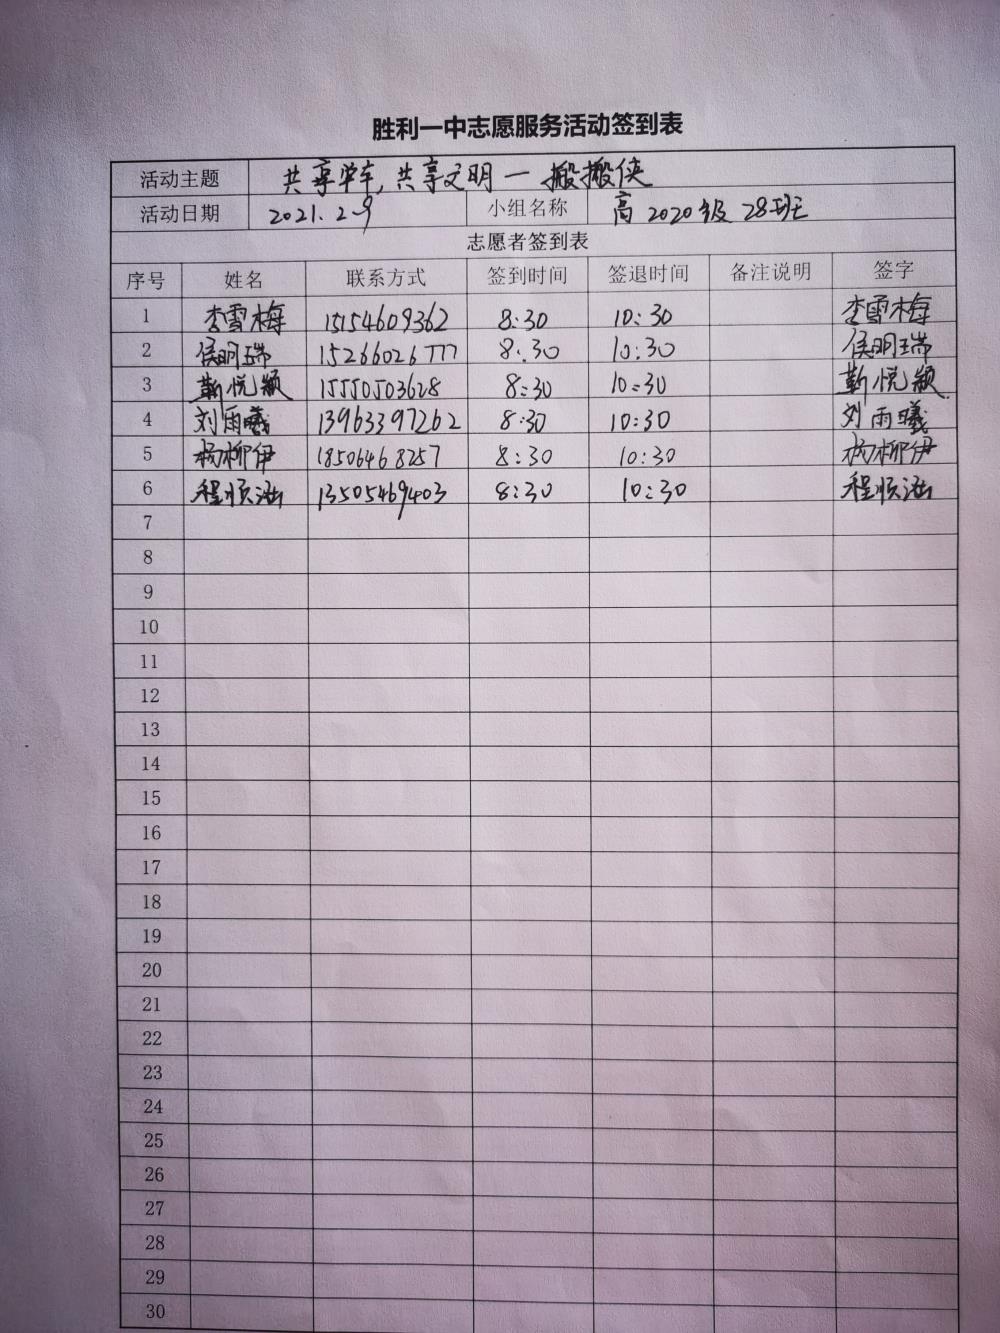 胜利一中志愿服务活动签到表
活动主题 共享单车,共享文明一搬搬侠
活动日期 2021.2.9 小组名称 高2020级28班
志愿者签到表
序号 姓名 联系方式 签到时间 签退时间 备注说明 签字
1 李雪梅 15154609362 8:30 10:30 李雪梅
2 侯明瑞 15266026777 8:30 10:30 侯明瑞
3 靳悦颖 15550503628 8:30 10:30 靳悦颖
4 刘雨曦 13963397262 8:30 10:30 刘雨曦
5 杨柳伊 18506468257 8:30 10:30 杨柳伊
6 程顺 13505469403 8:30 10:30 程顺
7
8
9
10
11
12
13
14
15
16
17
18
19
20
21
22
23
24
25
26
27
28
29
30